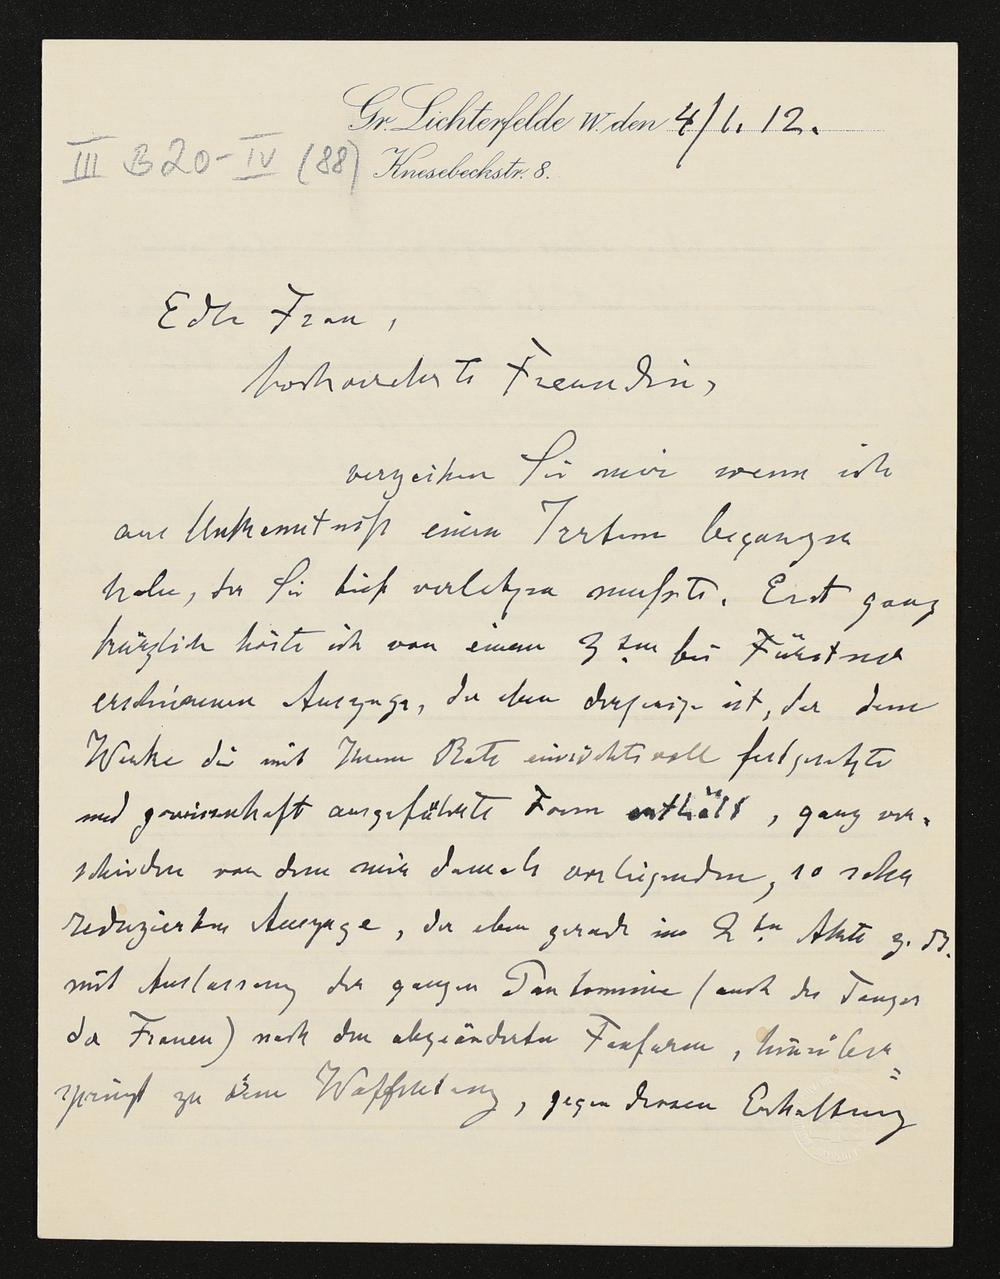 Gr. Lichterfelde W. den 4/1. 12.
III B 20-IV (88)
Knesebeckstr. 8.
Edle Frau,
hochverehrte Freundin,
verzeihen Sie mir wenn ich
aus Unkenntniß einen Irrtum begangen
habe, der Sie tief verletzen mußte. Erst ganz
kürzlich hörte ich von einem 2ten bei Fürstner
erschienenen Auszuge, der eben derjenige ist, der dem
Werke die mit Ihrem Rate einsichtsvoll festgesetzte
und gewissenhaft ausgeführte Form enthält, ganz ver-
schieden von dem mir damals vorliegenden, so sehr
reduzierten Auszuge, der eben gerade im 2ten Akte z. B.
mit Auslassung der ganzen Pantomime (auch des Tanzes
der Frauen) nach den abgeänderten Fanfaren, hinüber=
springt zu dem Waffentanz, gegen dessen Erhaltung